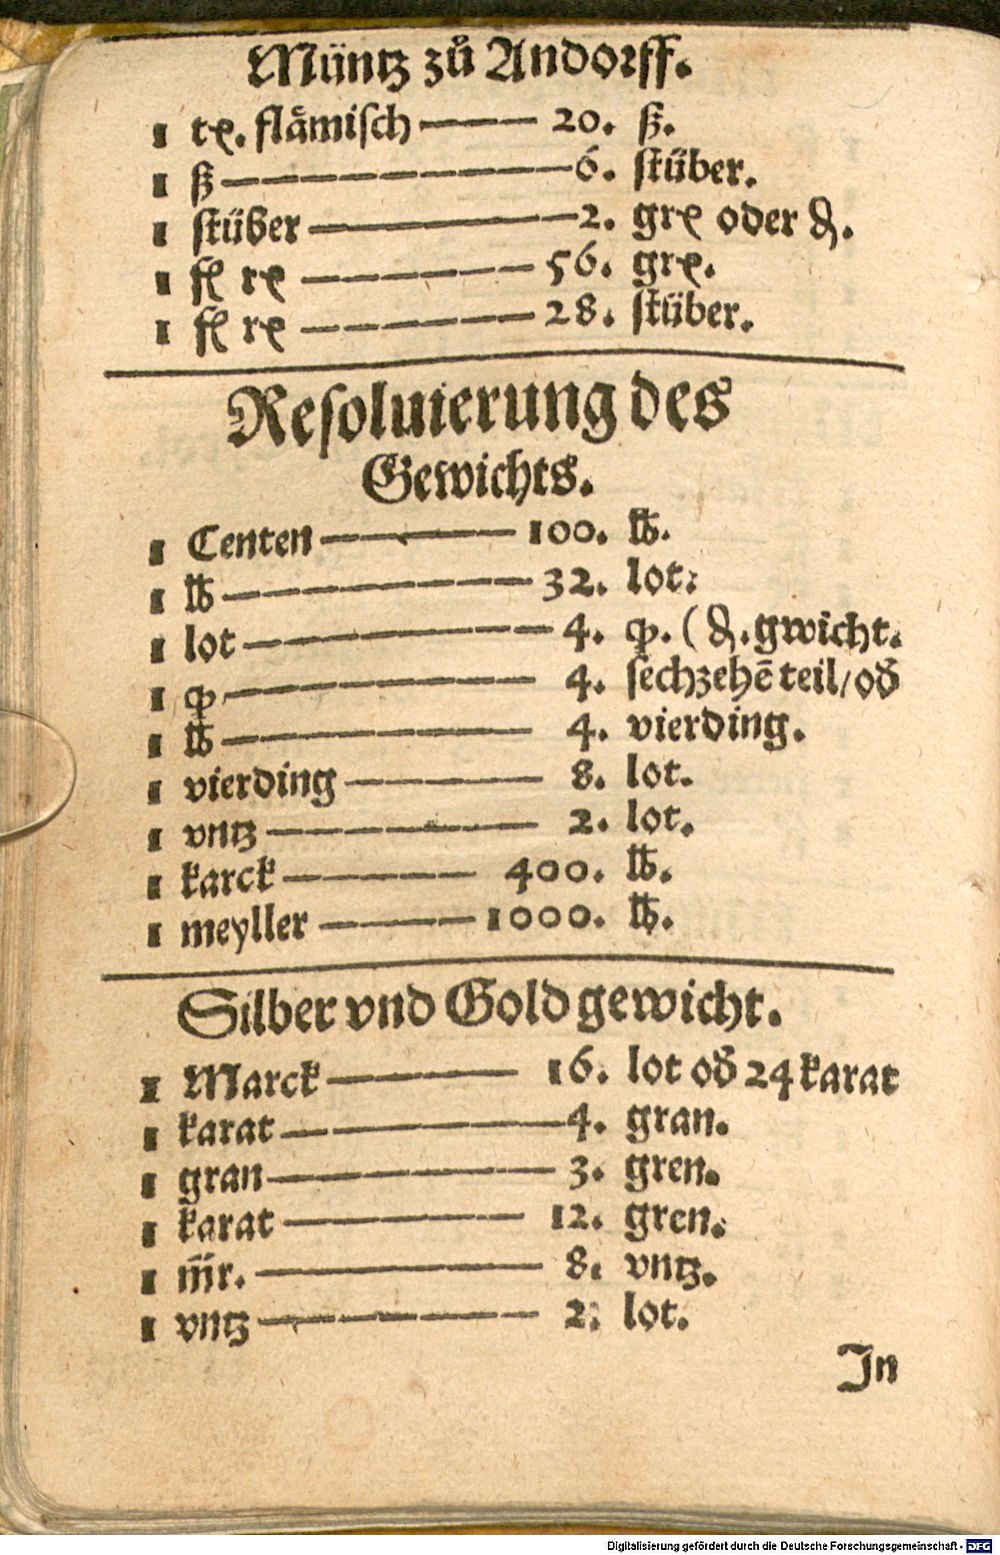 Müntz zů Andorff.
1 tꝝ. flåmiſch —— 20. ß.
1 ß —— 6. ſtüber.
1 ſtüber —— 2. grꝝ oder ₰.
1 fl rꝝ —— 56. grꝝ.
1 fl rꝝ —— 28. ſtüber.
Reſoluierung des
Gewichts.
1 Centen —— 100. ℔.
1 ℔ —— 32. lot.
1 lot —— 4. qͥ. ( ₰. gwicht.
1 qͥ —— 4. ſechzehē teil/ od̄
1 ℔ —— 4. vierding.
1 vierding —— 8. lot.
1 vntz —— 2. lot.
1 karck —— 400. ℔.
1 meyller —— 1000. ℔.
Silber vnd Gold gewicht.
1 Marck —— 16. lot od̄ 24 karat
1 karat —— 4. gran.
1 gran —— 3. gren.
1 karat —— 12. gren.
1 m̄r. —— 8. vntz.
1 vntz —— 2. lot.
In
Digitalisierung gefördert durch die Deutsche Forschungsgemeinschaft - DFG